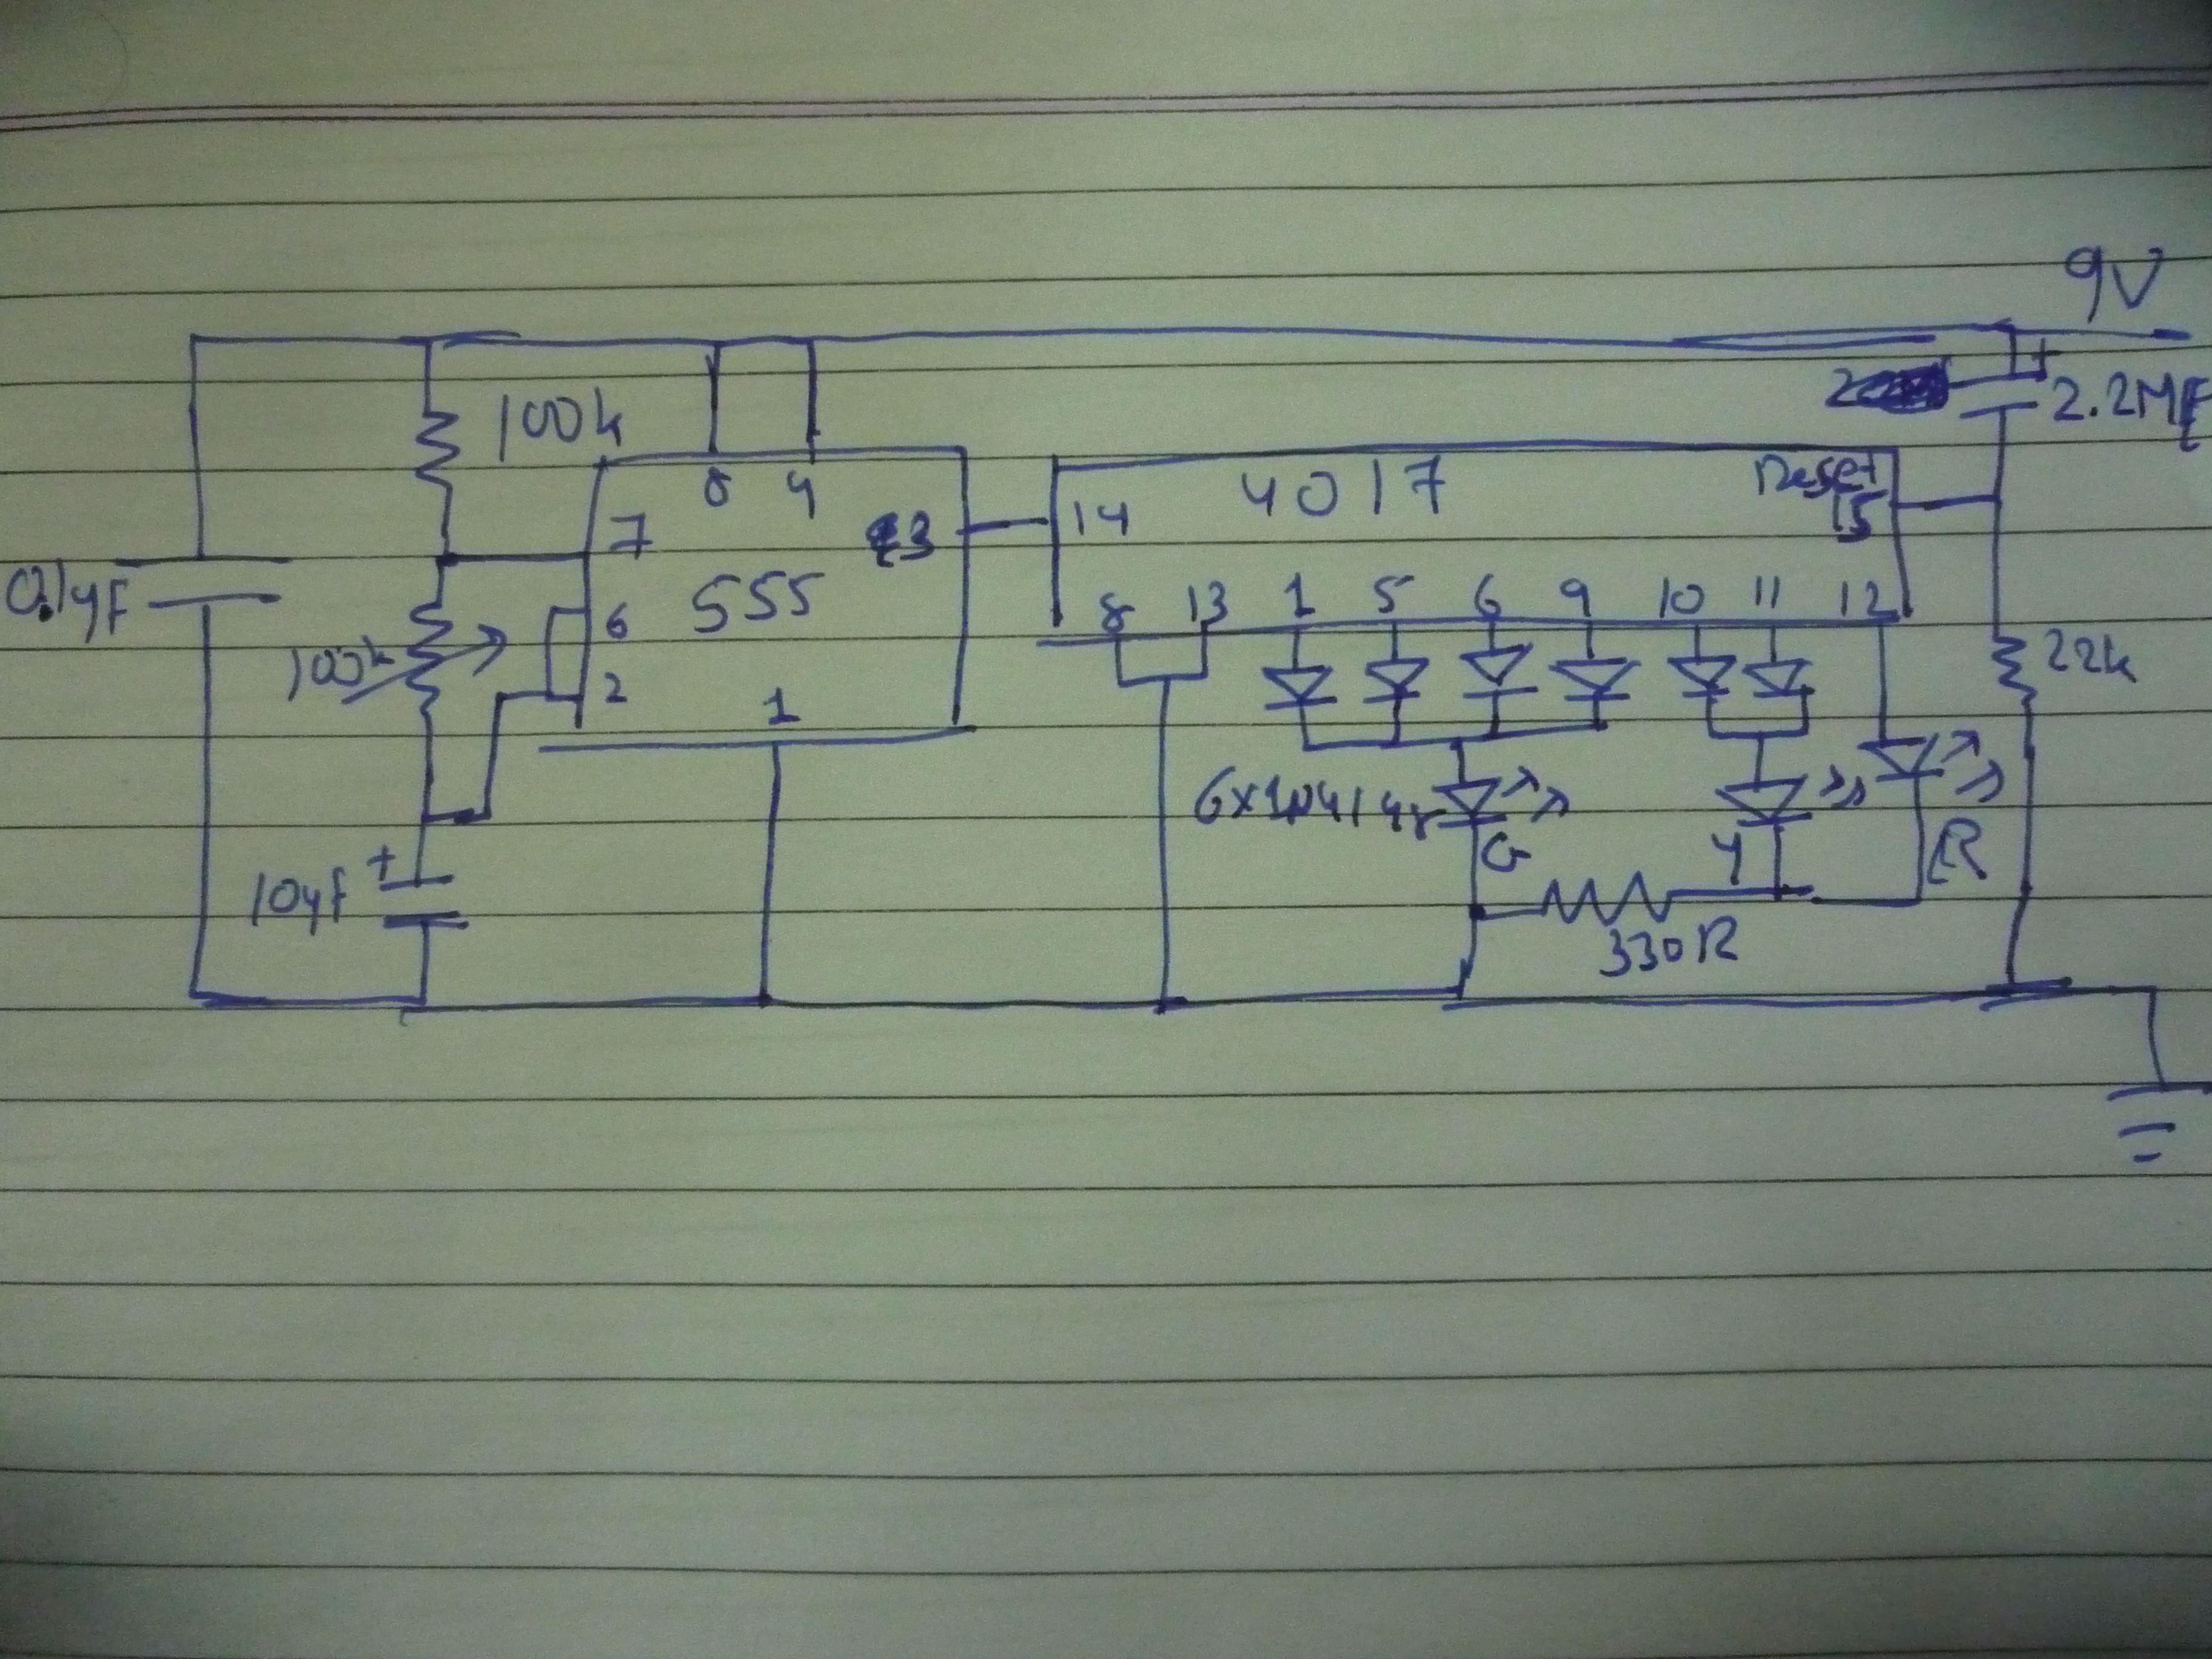 9V
+
2.2MF
100k
8 4
4017
Reset
15
7
3
14
0.1yF
555
6
8 13 1 5 6 9 10 11 12
100k
2
1
22k
6x1N4148
G
Y
R
+
10yF
330R